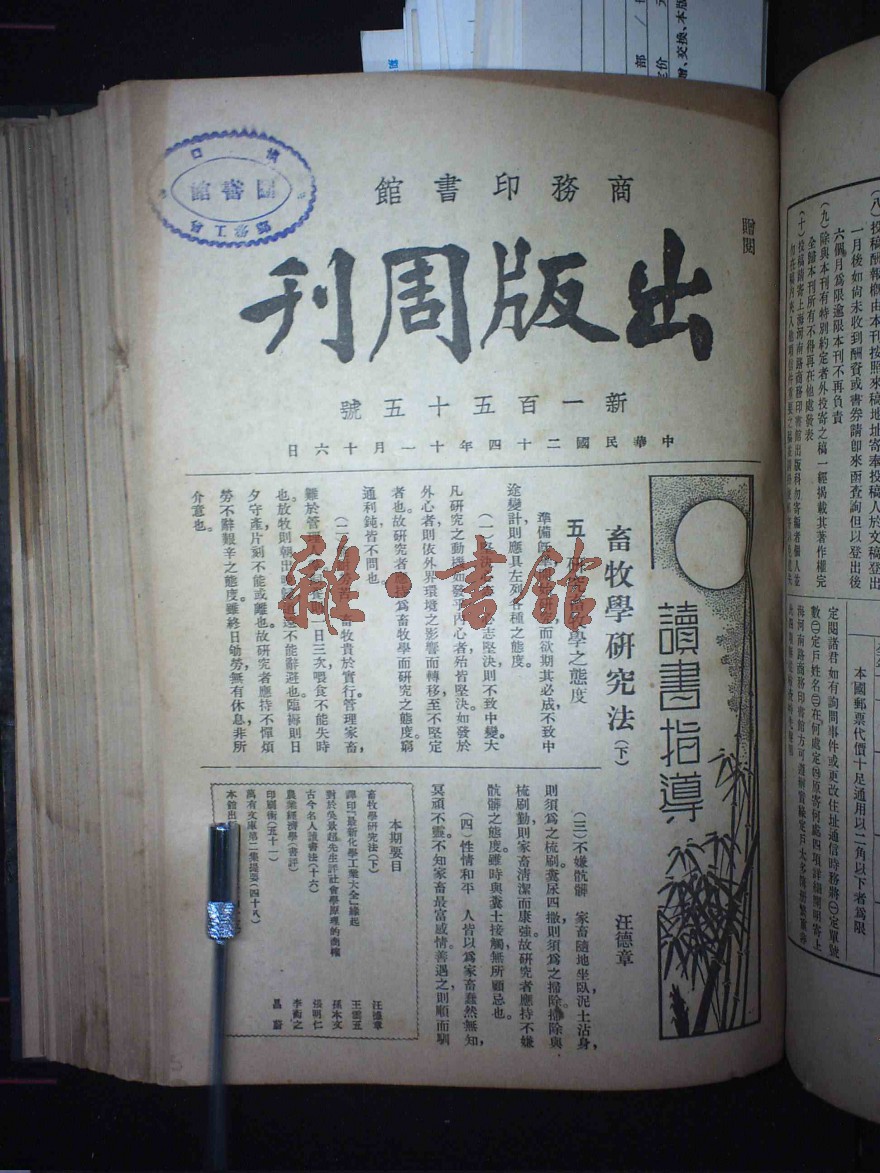 商務印書館
贈閱
出版周刊
新一百五十五號
中華民國二十四年十一月十六日
讀書指導
畜牧學研究法(下)
汪德章
五 研究畜牧學之態度
準備既
而欲期其必成,不致中
途變計,則應具左列各種之態度。
志堅決,則不致中變。大
凡研究之動機,如發乎內心者,殆皆堅決。如發於
外心者,則依外界環境之影響而轉移,至不堅定
者也。故研究者應持爲畜牧學而研究之態度。窮
通利鈍,皆不問也。
畜牧貴於實行。管理家畜,
難於管理人
則一日三次,喂食不能失時
也。放牧則朝出
不能辭避也。臨褥則日
夕守產,片刻不能或離也。故研究者應持不憚煩
勞不辭艱辛之態度。雖終日劬勞,無有休息,非所
介意也。
(三)不嫌骯髒 家畜隨地坐臥,泥土沾身,
則須爲之梳刷。糞尿四撒,則須爲之掃除。掃除與
梳刷勤,則家畜清潔而康強。故研究者應持不嫌
骯髒之態度。雖時與糞土接觸,無所顧忌也。
(四)性情和平 人皆以爲家畜蠢然無知,
冥頑不靈。不知家畜最富感情。善遇之,則順而馴
本期要目
畜牧學研究法(下) 汪德章
譯印「最新化學工業大全」緣起 王雲五
對於吳景超先生評社會學原理的商榷 孫本文
古今名人讀書法(十六) 張明仁
農業經濟學(書評) 李衡之
印刷術(五十一) 昌蔚
萬有文庫第二集提要(四十八)
本館出
投稿酬報概由本刊按照來稿地址寄奉投稿人於文稿登出
一月後如尚未收到酬資或書券請即來函查詢但以登出後
六個月爲限逾限本刊不再負責
(九)除與本刊有特別約定者外投寄之稿一經揭載其著作權完
全歸本刊所有不得再在他處發表
(十)投稿請寄上海河南路商務印書館出版科
本國郵票代價十足通用以二角以下者爲限
定閱諸君如有詢問事件或更改住址通信時務將㊀定單號
數㊁定戶姓名㊂在何處定㊃原寄何處四項詳細開明寄上
海河南路商務印書館方可
雜·書館